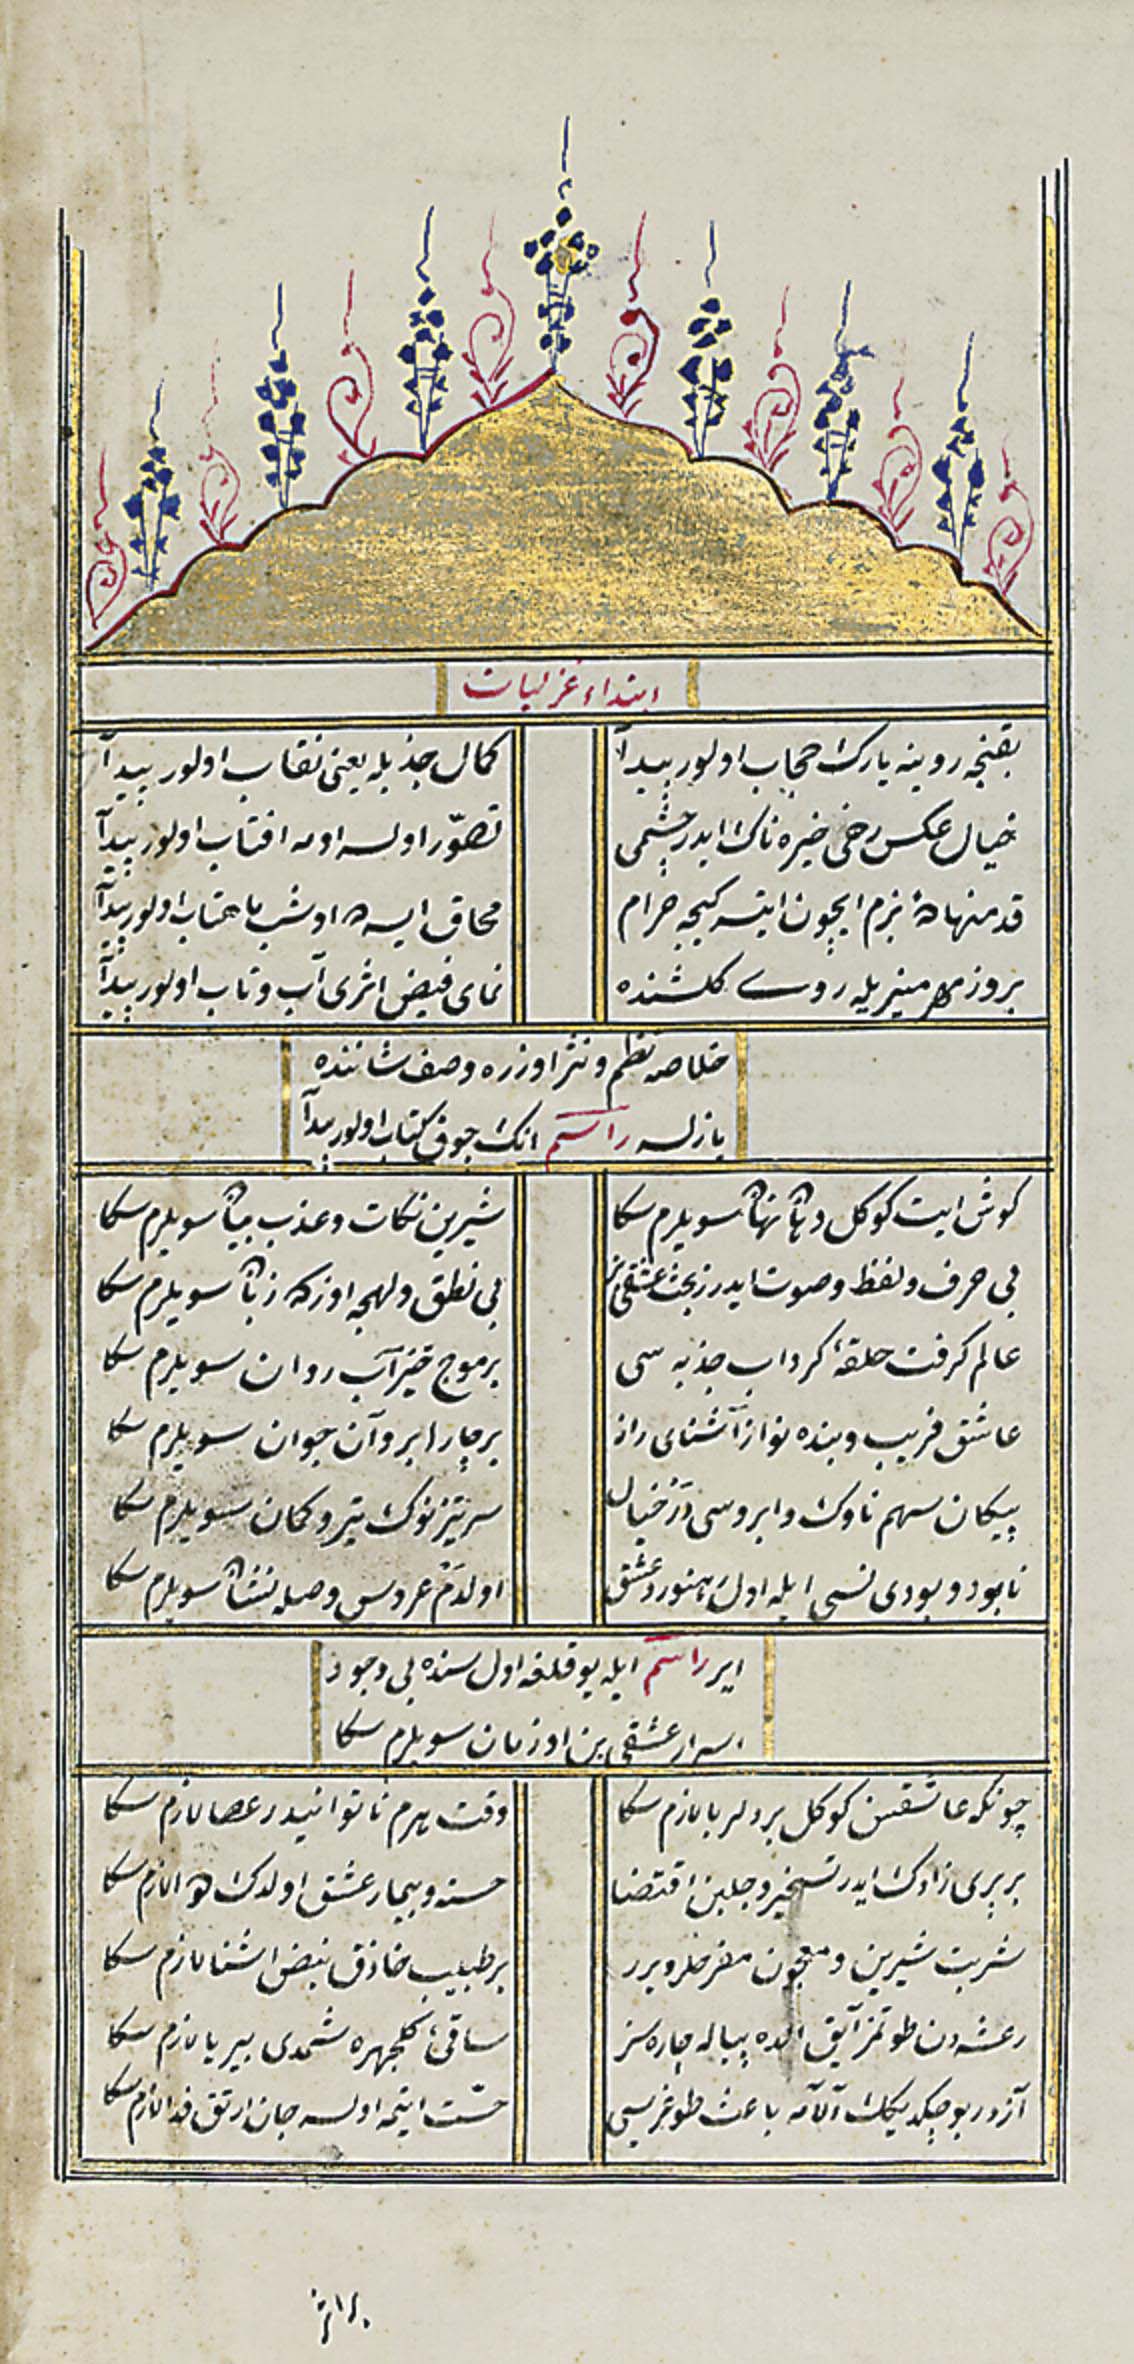 ابتداء غزلیات
بقنجه روینه یارك حجاب اولور پیدا
کمال جذبله یعنی نقاب اولور پیدا
خیال عکس رخی خیره ناك ایدر چشمی
تصوّر اولسه او مه افتاب اولور پیدا
قدم نهادۀ بزم ایچون ایتسه کیجه خرام
محاق ایسه ده او شب ماهتاب اولور پیدا
بروز مهر منیریله روی کلشنده
نمای فیض اثری آب و تاب اولور پیدا
خلاصه نظم و نثر اوزره وصف شاننده
یازلسه راسم انك چوق کتاب اولور پیدا
کوش ایت کوکل دهان نهان سویلرم سکا
شیرین نکات و عذب بیان سویلرم سکا
بی حرف و لفظ و صوت ایدرز بحث عشقی
بی نطق و لهجه اوزکه زبان سویلرم سکا
عالم کرفت حلقۀ کرداب جذبه سی
بر موج خیز آب روان سویلرم سکا
عاشق فریب و بنده نواز آشنای راز
بر چار ابرو آن جوان سویلرم سکا
پیکان سهم ناوك و ابروسی در خیال
سر تیز نوك تیر و کمان سویلرم سکا
نابود و بودی نسی ایله اول عشق
اولدم عروس وصله نشان سویلرم سکا
ایر راسم ایله یوقلغه اول سنده بی وجود
اسرار عشقی بن او زمان سویلرم سکا
چونکه عاشقسن کوکل بر دلربا لازم سکا
وقت پیرم ناتوانیدر عصا لازم سکا
بر پری زادك ایدر تسخیر و جلبن اقتضا
خسته و بیمار عشق اولدك دوا لازم سکا
شربت شیرین و معجون مفرحلر ویرر
بر طبیب حاذق نبض اشنا لازم سکا
رعشه دن طوتمز آیق الده پیاله چاره سز
ساقئ کلچهره شمدی بیریا لازم سکا
آز دریو چکدیکك آلامه باعث
حسّت ایتمه اولسه جان ارتق فدا لازم سکا